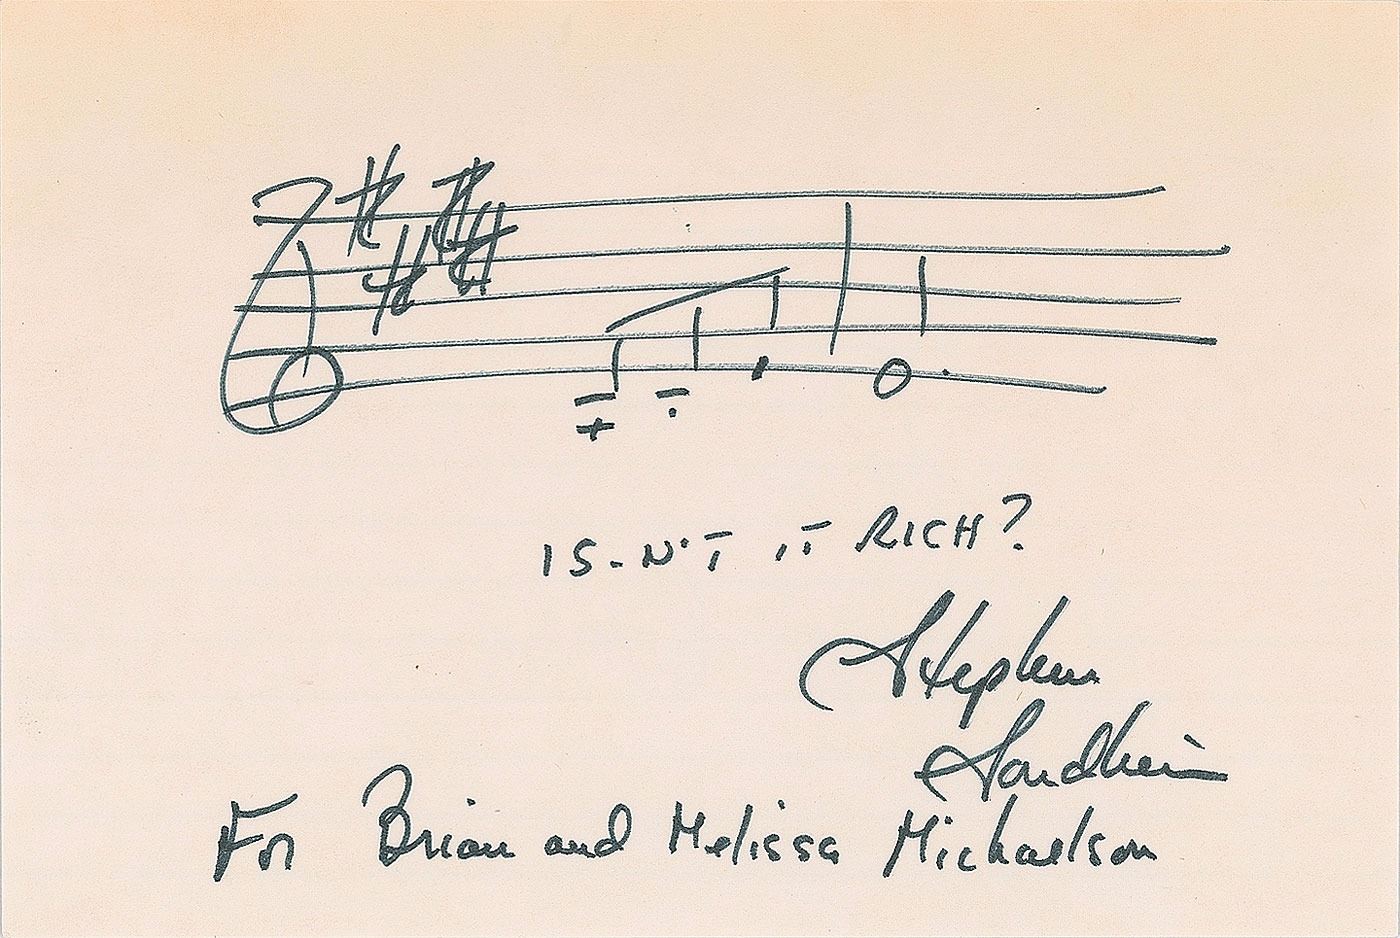 IS-N'T IT RICH?
Stephen
Sondheim
For Brian and Melissa Michaelson